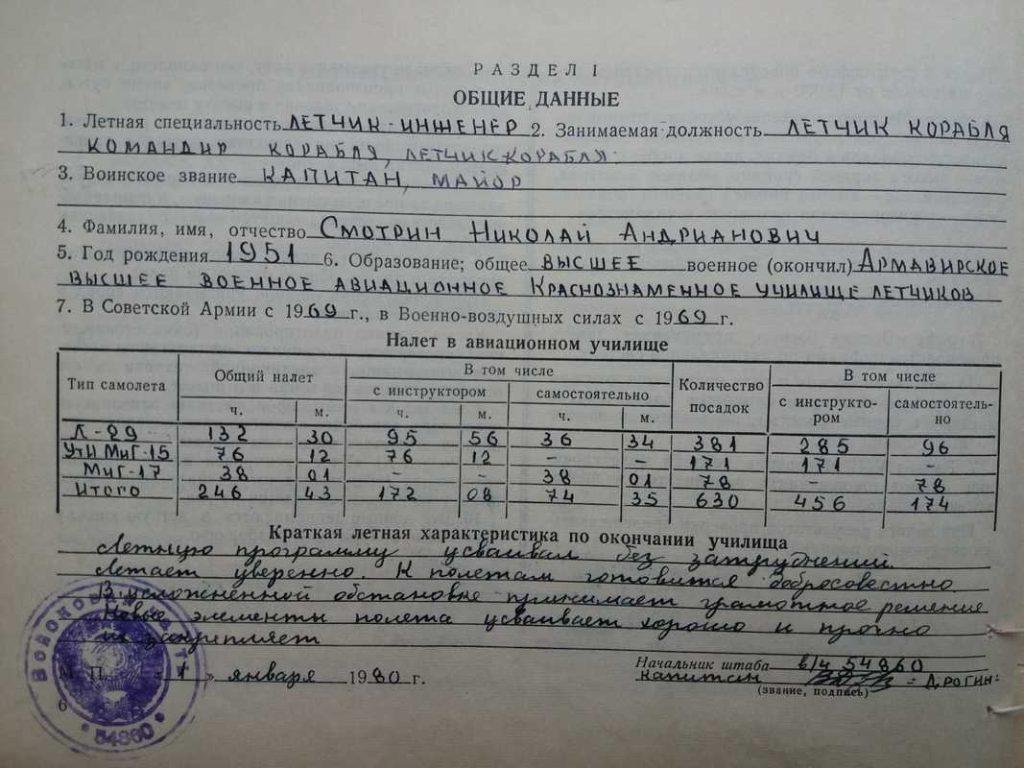 РАЗДЕЛ I
ОБЩИЕ ДАННЫЕ
1. Летная специальность ЛЕТЧИК-ИНЖЕНЕР 2. Занимаемая должность ЛЕТЧИК КОРАБЛЯ
КОМАНДИР КОРАБЛЯ, ЛЕТЧИК КОРАБЛЯ
3. Воинское звание КАПИТАН, МАЙОР
4. Фамилия, имя, отчество СМОТРИН НИКОЛАЙ АНДРИАНОВИЧ
5. Год рождения 1951 6. Образование; общее ВЫСШЕЕ военное (окончил) АРМАВИРСКОЕ
ВЫСШЕЕ ВОЕННОЕ АВИАЦИОННОЕ КРАСНОЗНАМЕННОЕ УЧИЛИЩЕ ЛЕТЧИКОВ
7. В Советской Армии с 1969 г., в Военно-воздушных силах с 1969 г.
Налет в авиационном училище
Тип самолета Общий налет В том числе Количество посадок В том числе
с инструктором самостоятельно с инструкто-ром самостоятель-но
ч. м. ч. м. ч. м.
Л-29 132 30 95 56 36 34 381 285 96
УТИ МиГ-15 76 12 76 12 - - 171 171 -
МиГ-17 38 01 - - 38 01 78 - 78
Итого 246 43 172 08 74 35 630 456 174
Краткая летная характеристика по окончании училища
Летную программу усваивал без затруднений.
Летает уверенно. К полетам готовится добросовестно
В усложненной обстановке принимает грамотное решение
Новые элементы полета усваивает хорошо и прочно
их закрепляет
Начальник штаба в/ч 54860
М. П. «1» января 1980 г. капитан Дрогин
(звание, подпись)
6
54860